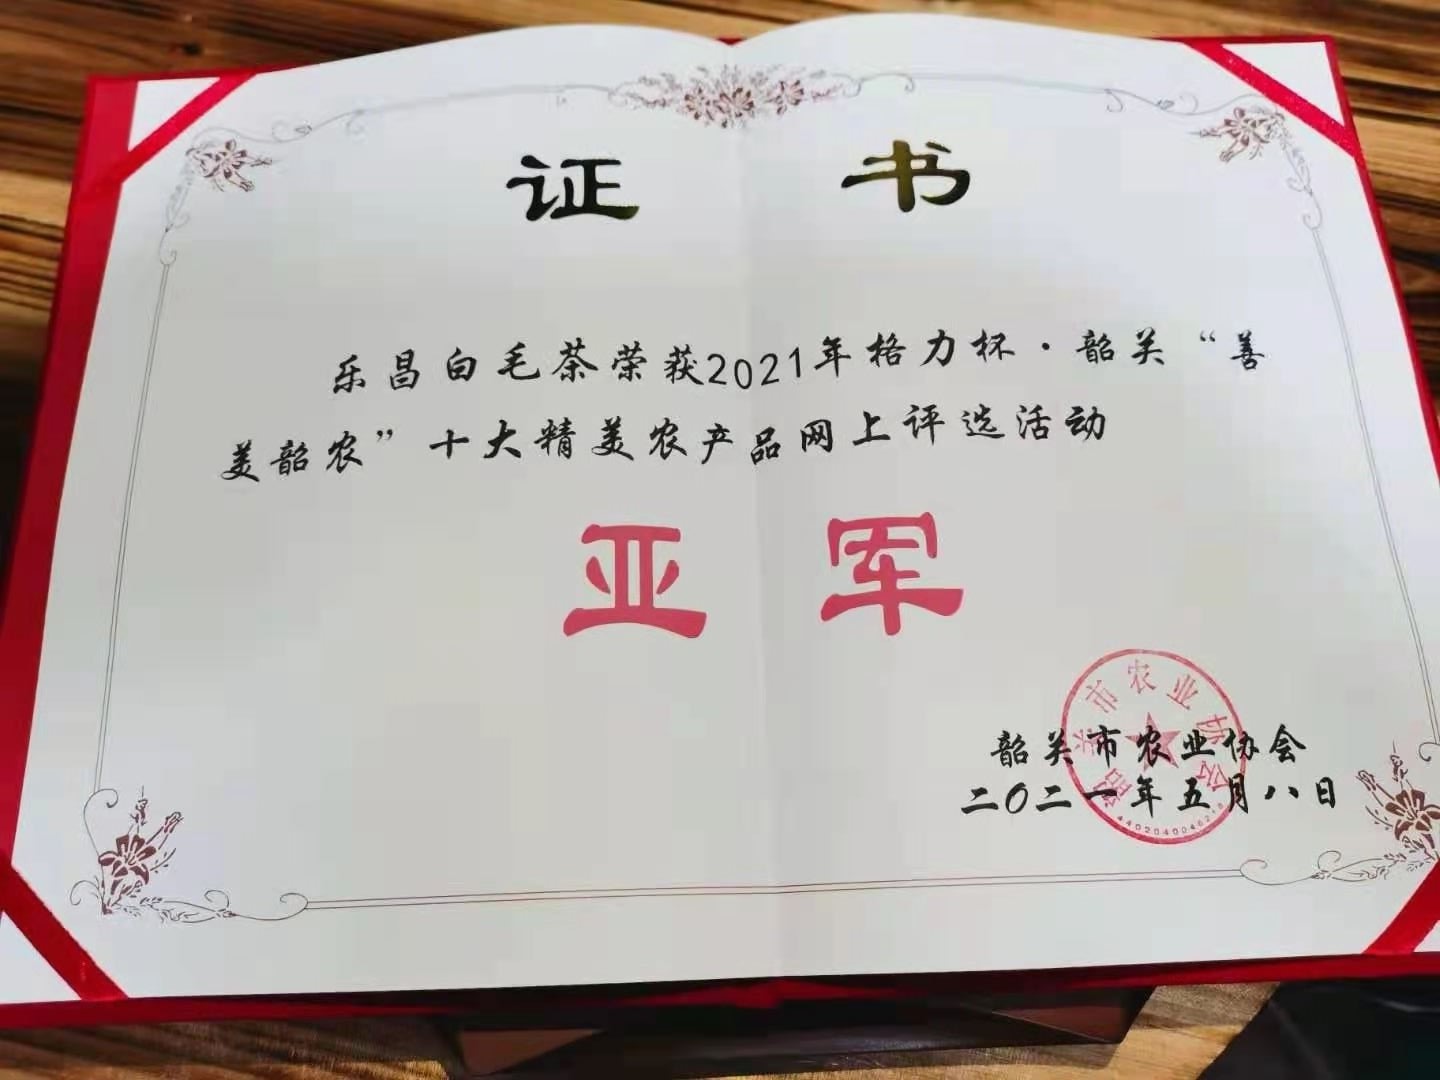 证 书
乐昌白毛茶荣获2021年格力杯·韶关“善
美韶农”十大精美农产品网上评选活动
亚军
韶关市农业协会
二〇二一年五月八日
韶关市农业协会